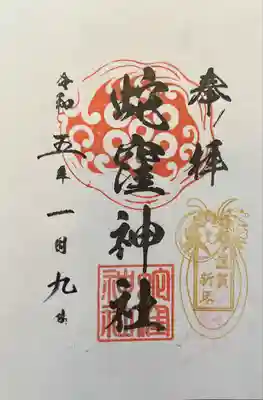 奉拝
蛇窪神社
令和五年一月九日
蛇窪神社
謹賀新年